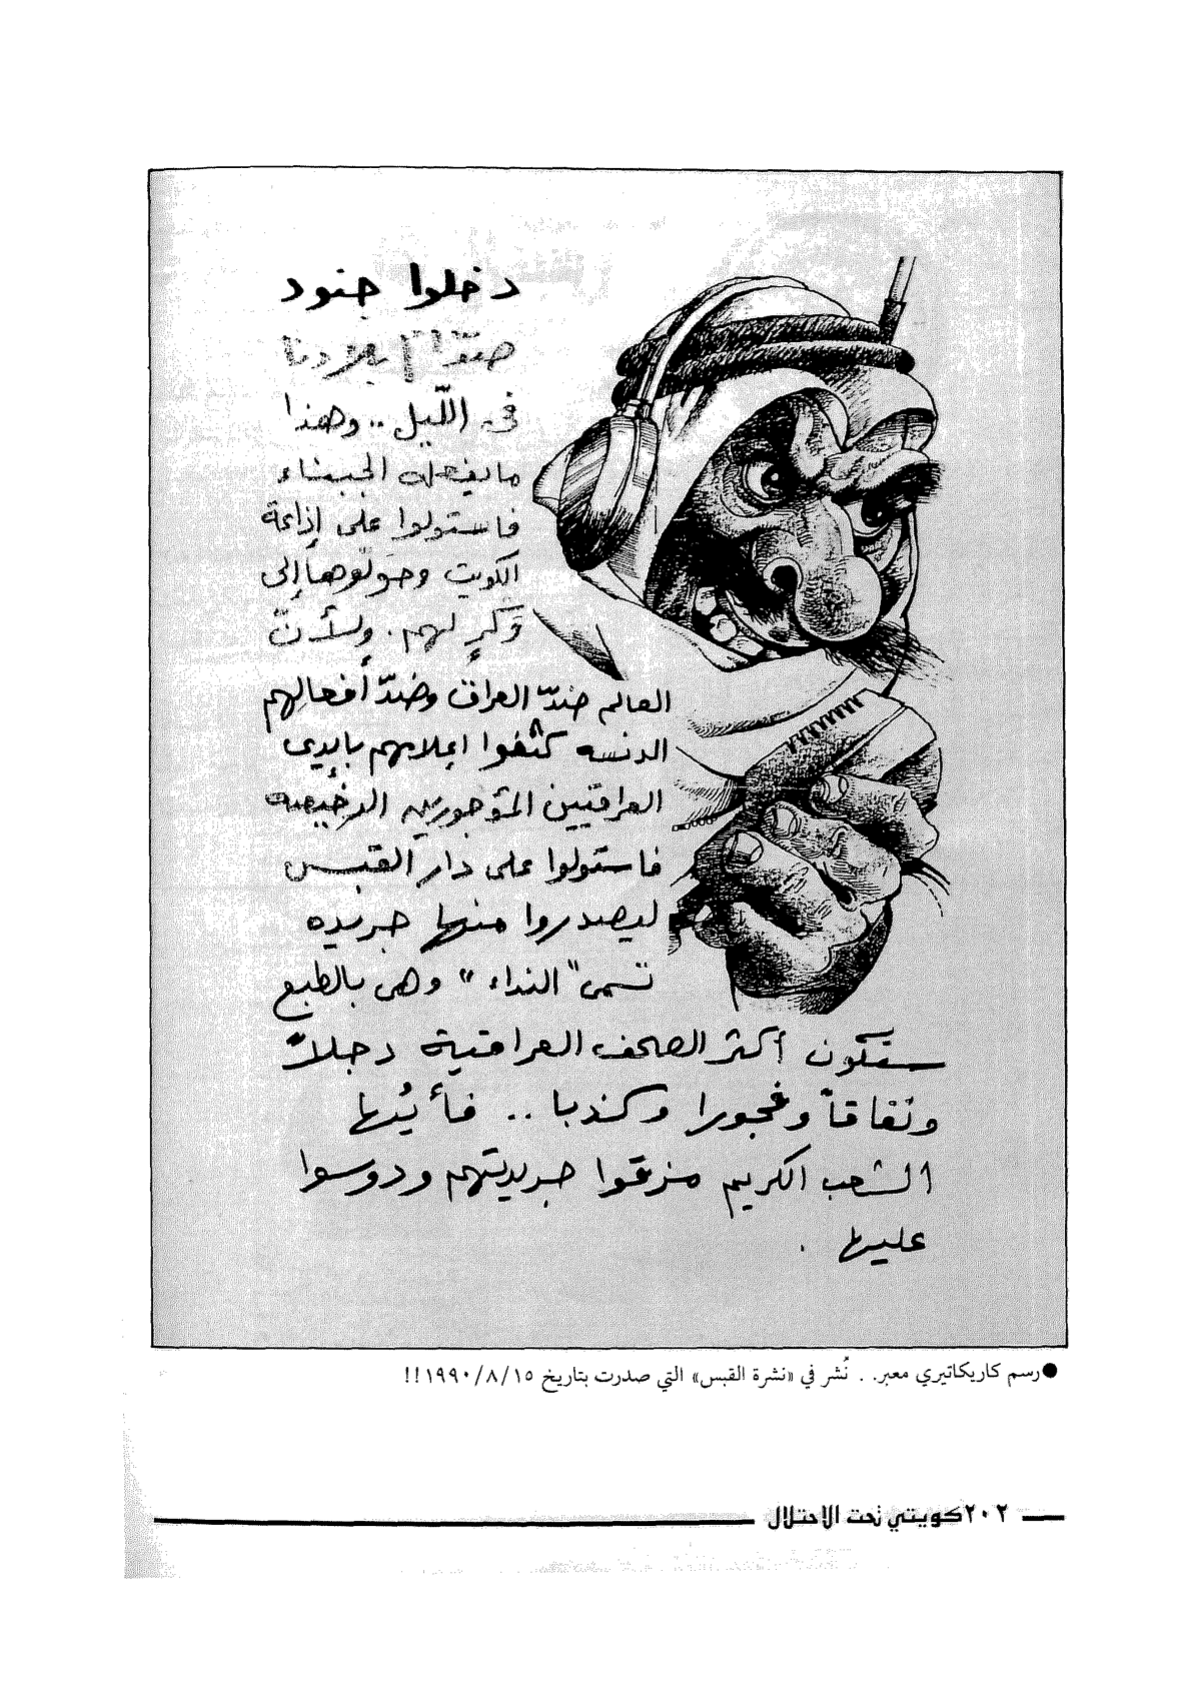 دخلوا جنود
صدّام بلادنا
في اللّيل .. وهذا
مايفعله الجبناء
فاستولوا على إذاعة
الكويت وحوّلوها إلى
وَكرٍ لهم. ولأنّ
العالم ضدّ العراق وضدّ أفعالهم
الدنسه كثفوا إعلامهم بأيدي
العراقيين المؤجورين الرخيصه
فاستولوا على دار القبس
ليصدروا منها جريده
تسمى "النداء" وهى بالطبع
ستكون أكثر الصحف العراقية دجلاً
ونفاقاً وفجورا وكذبا .. فأيُها
الشعب الكريم مزقوا جريدتهم ودوسوا
عليها .
● رسم كاريكاتيري معبر. . نُشر في «نشرة القبس» التي صدرت بتاريخ ١٩٩٠/٨/١٥!!
٢٠٢ كويتي تحت الاحتلال